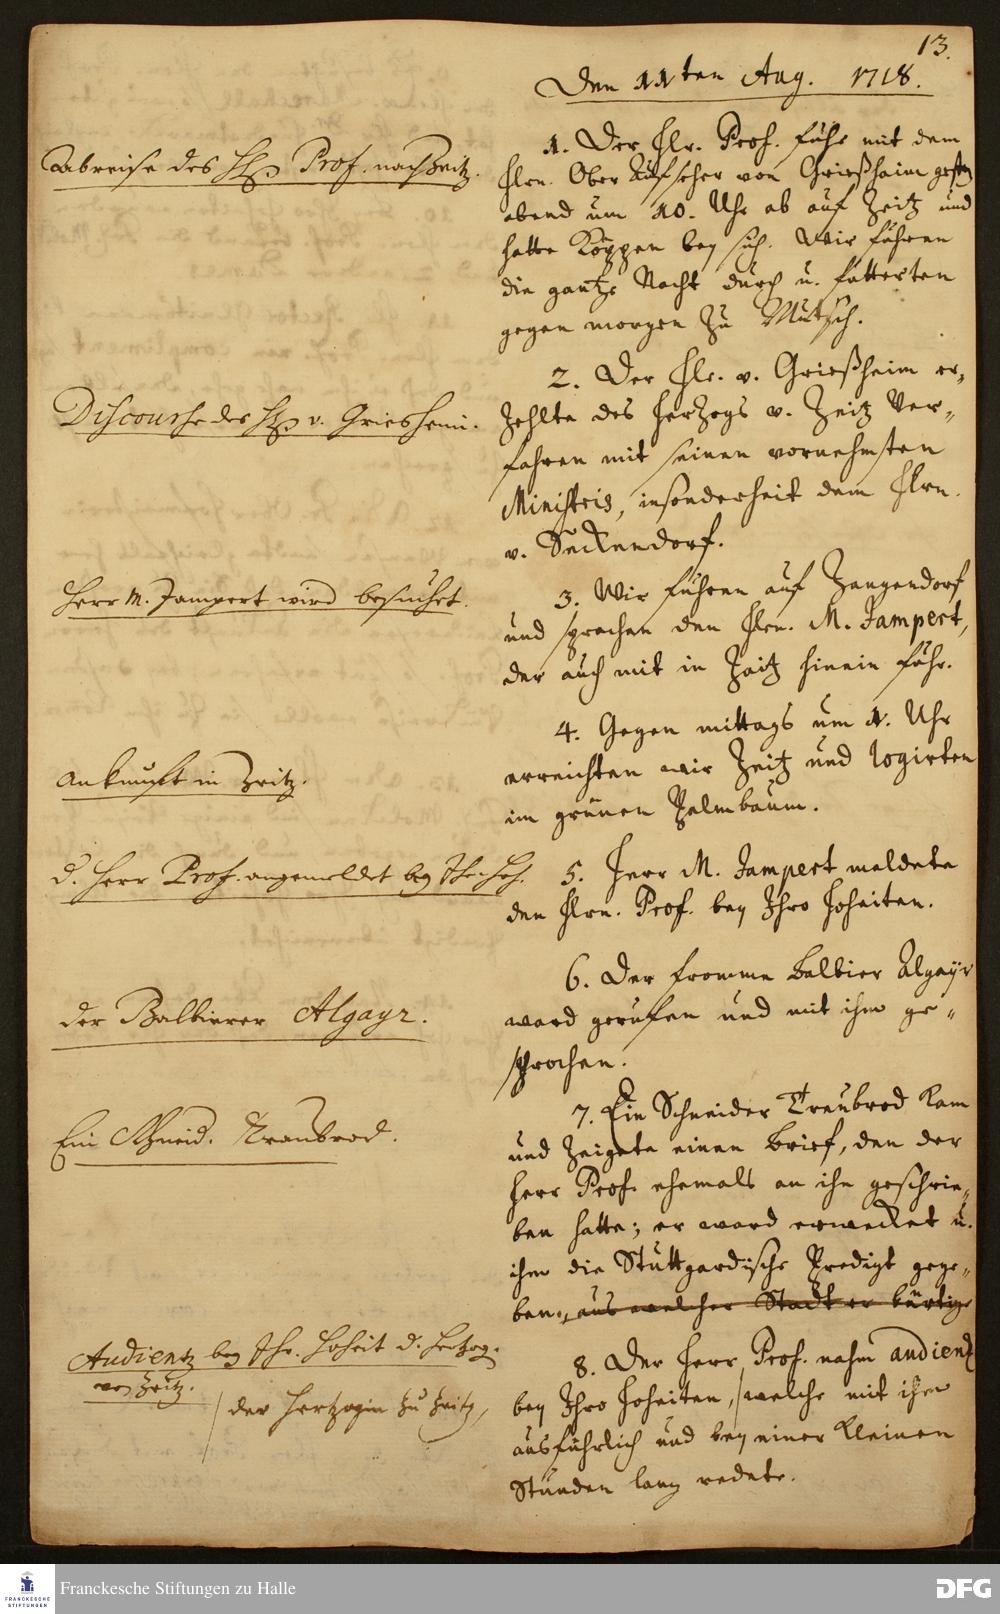 13.
Den 11ten Aug. 1718.
Abreise des H. Prof. nach Zeitz.
1. Der Hr. Prof. fuhr mit dem
Hrn. Ober Aufseher von Grießheim gestern
abend um 10. Uhr ab auf Zeitz und
hatte Köppen bey sich. Wir fuhren
die gantze Nacht durch u. fütterten
gegen morgen zu Mutsch.
Discourse des H. v. Griesheim.
2. Der Hr. v. Grießheim er-
zehlte des Hertzogs v. Zeitz Ver-
fahren mit seinen vornehmsten
Ministris, insonderheit dem Hrn.
v. Seckendorf.
Herr M. Jampert wird besuchet.
3. Wir fuhren auf Zangendorf
und sprachen den Hrn. M. Jampert,
der auch mit in Zeitz hinein fuhr.
Ankunfft in Zeitz.
4. Gegen mittags um 1. Uhr
erreichten wir Zeitz und logirten
im grünen Palmbaum.
d. Herr Prof. angemeldet bey Ihr. Hoh.
5. Herr M. Jampert meldete
den Hrn. Prof. bey Ihro Hoheiten.
der Balbierer Algayr.
6. Der fromme Balbier Algayr
ward geruffen und mit ihm ge-
sprochen.
Ein Schneid. Traubrod.
7. Ein Schneider Treubrod kam
und zeigete einen Brief, den der
Herr Prof. ehemals an ihn geschrie-
ben hatte; er ward erwecket u.
ihm die Stuttgardische Predigt gege-
ben, aus welcher Stadt er bürtig
Audientz bey Ihr. Hoheit d. Hertzog.
von Zeitz.
8. Der Herr Prof. nahm audientz
bey Ihro Hoheiten, / welche mit ihm
/ der Hertzogin zu Zeitz,
ausführlich und bey einer kleinen
Stunden lang redete.
Franckesche Stiftungen zu Halle
FRANCKESCHE
STIFTUNGEN
DFG